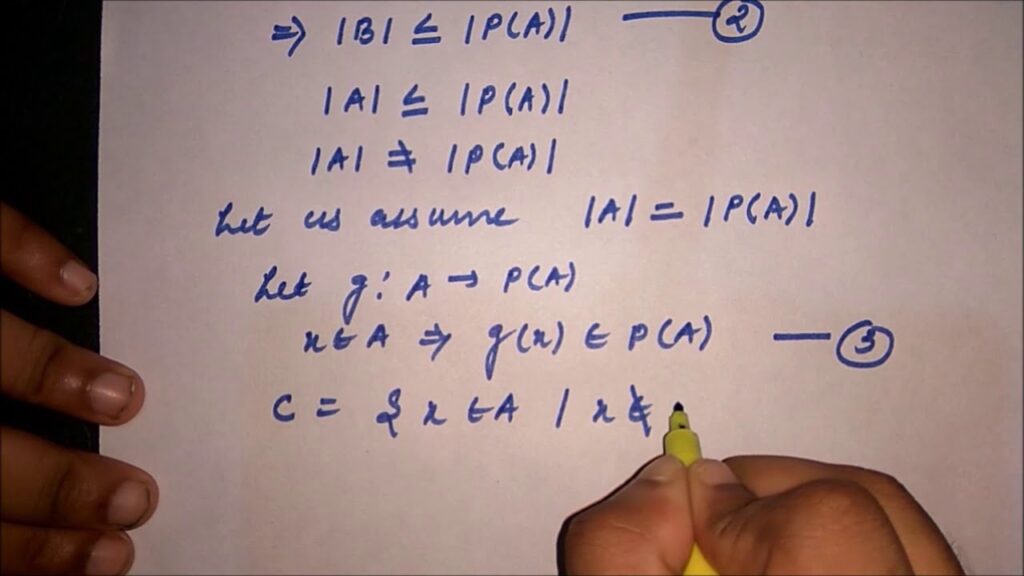 => |B| ≤ |P(A)| — 2
|A| ≤ |P(A)|
|A| ≠ |P(A)|
Let us assume |A| = |P(A)|
Let g: A → P(A)
x ∈ A ⇒ g(x) ∈ P(A) — 3
C = { x ∈ A / x ∉